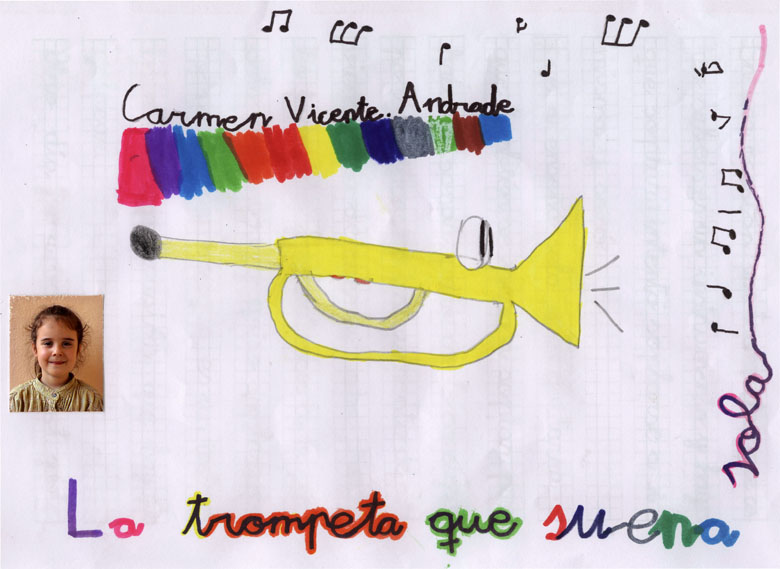 Carmen Vicente. Andrade
La trompeta que suena
sola